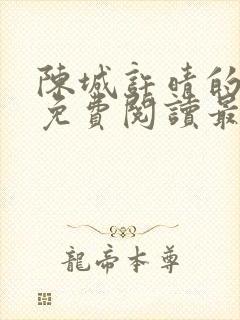 陳城許晴的
免費閱讀最
龍帝本尊